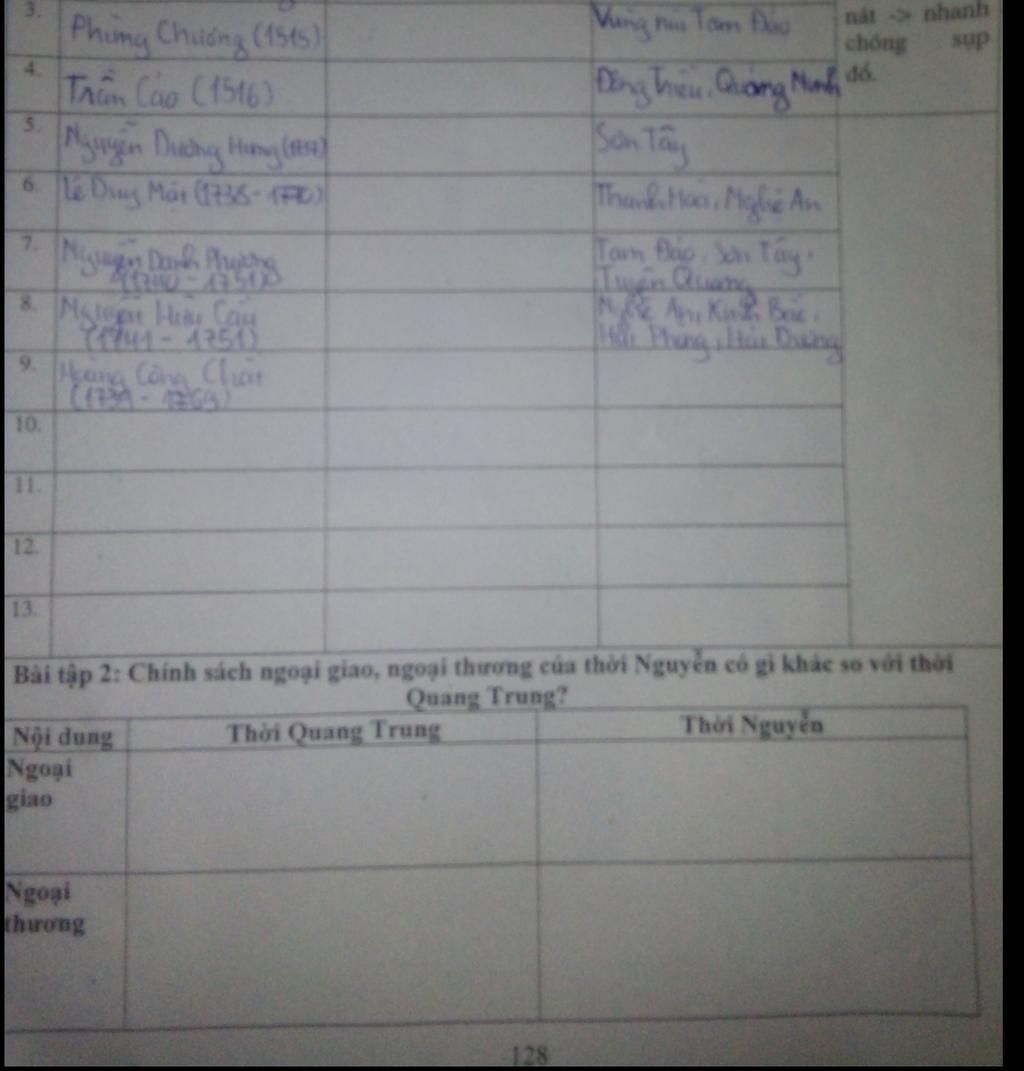 3. Phùng Chương (1515) Vùng núi Tam Đảo nát -> nhanh
chóng sụp
đổ.
4. Trần Cảo (1516) Đông Triều, Quảng Ninh
5. Nguyễn Dương Hưng (1737) Sơn Tây
6. Lê Duy Mật (1738 - 1770) Thanh Hóa, Nghệ An
7. Nguyễn Danh Phương Tam Đảo, Sơn Tây,
(1740 - 1751) Tuyên Quang
8. Nguyễn Hữu Cầu Nghệ An, Kinh Bắc,
(1741 - 1751) Hải Phòng, Hải Dương
9. Hoàng Công Chất
(1739 - 1769)
10.
11.
12.
13.
Bài tập 2: Chính sách ngoại giao, ngoại thương của thời Nguyễn có gì khác so với thời
Quang Trung?
Nội dung Thời Quang Trung Thời Nguyễn
Ngoại
giao
Ngoại
thương
128